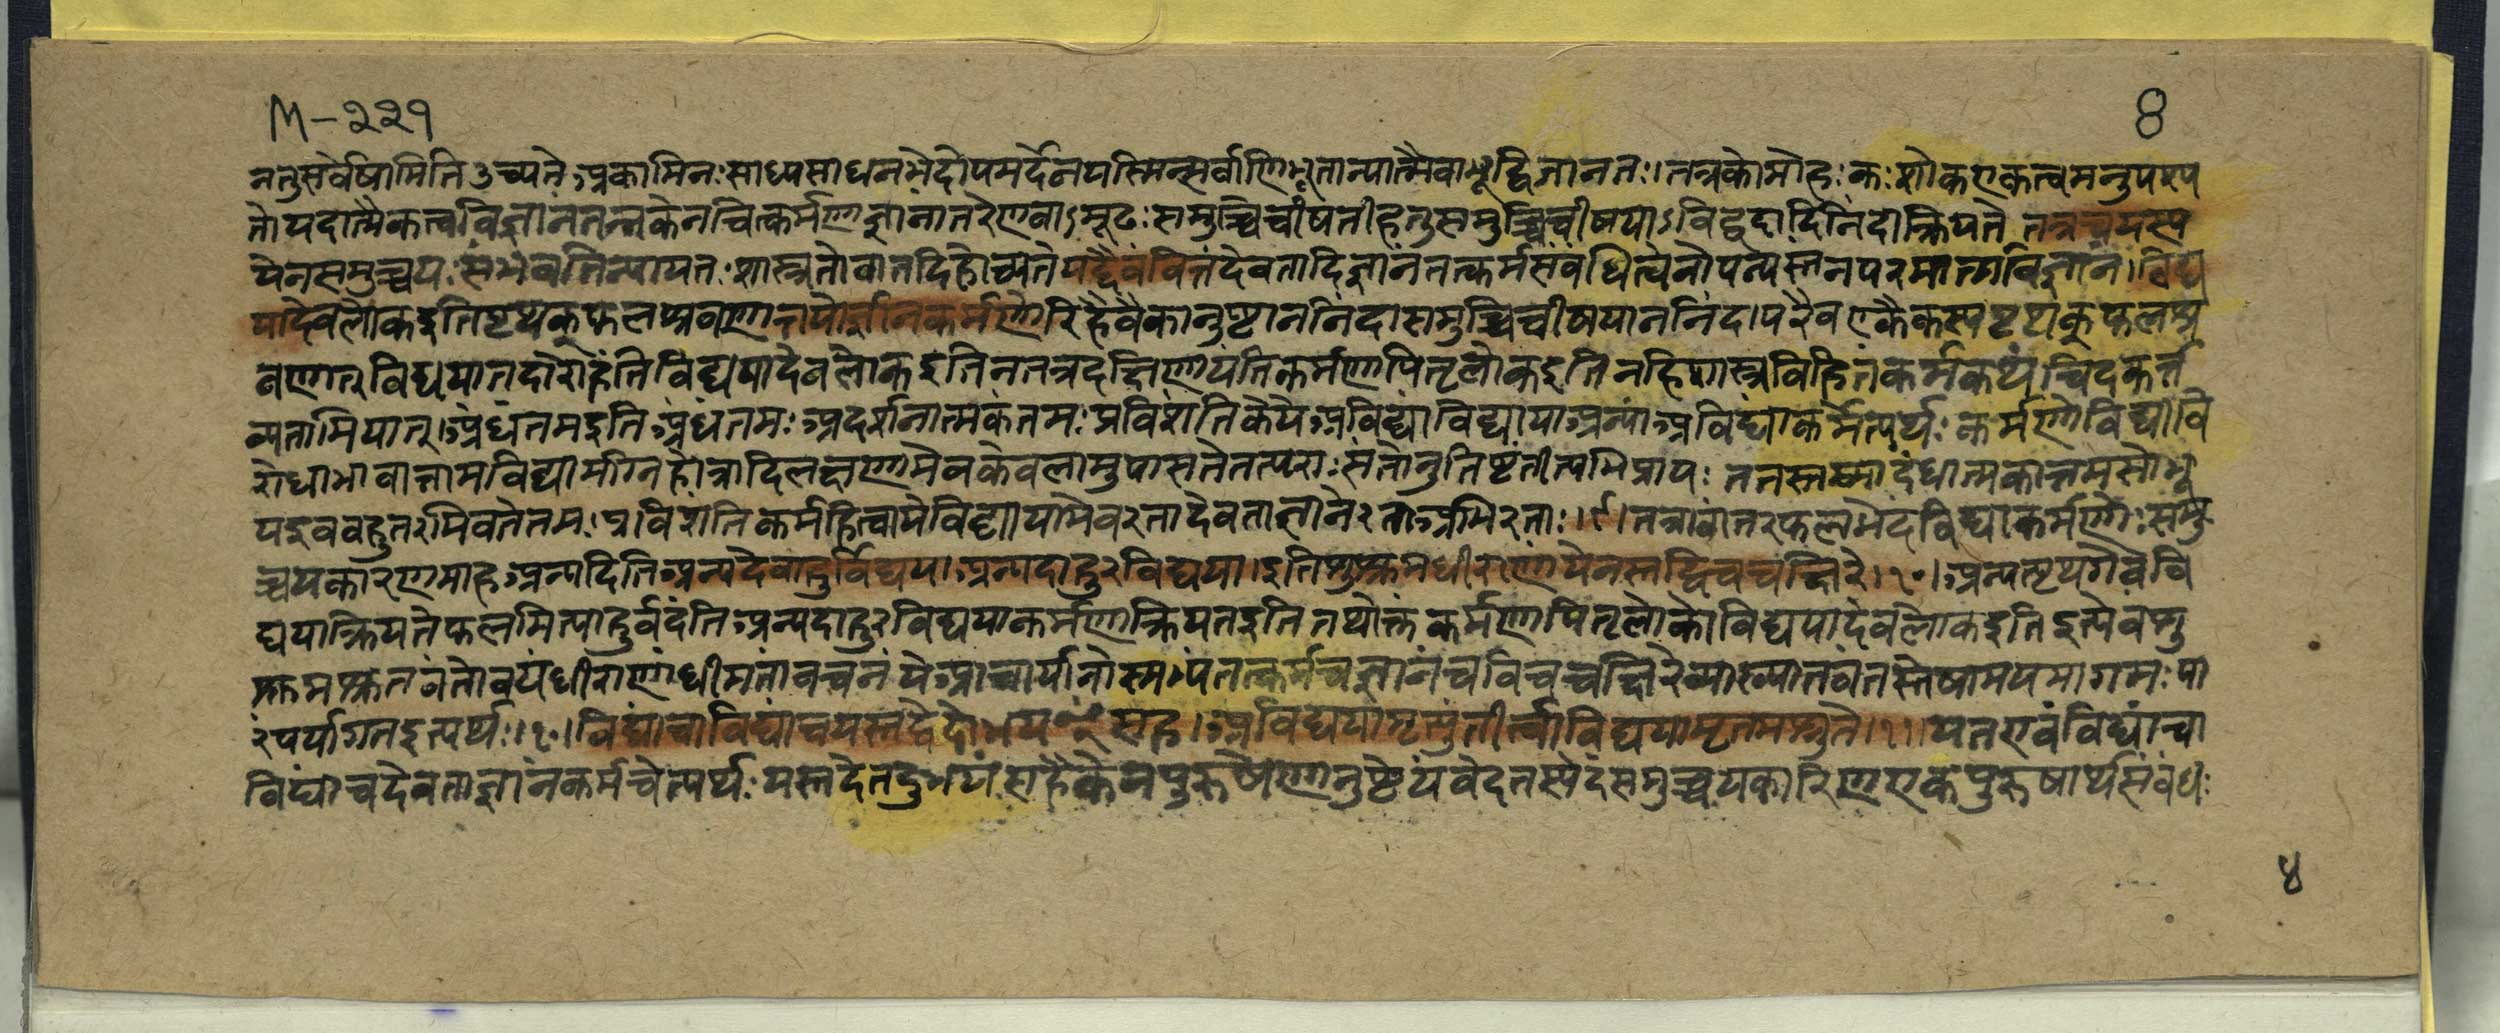 M-२२१
8
नतुसर्वेषामितिउच्यतेअकामिनःसाध्यसाधनभेदोपमर्देनयस्मिन्सर्वाणिभूतान्यात्मैवाभूद्विजानतः।तत्रकोमोहःकःशोकएकत्वमनुपश्य
तोयदात्मैकत्वविज्ञानंतन्नकेनचित्कर्मणाज्ञानांतरेणवाऽमूढःसमुच्चिचीषतीहतुसमुच्चिचीषयाऽविद्वदादिनिंदाक्रियतेतत्रचयस्य
येनसमुच्चयःसंभवतिन्यायतःशास्त्रतोवातदिहोच्यतेयद्दैवंवित्तंदेवतादिज्ञानंतत्कर्मसंबंधित्वेनोपन्यस्तंनपरमात्मविज्ञानं।विद्य
यादेवलोकइतिपृथक्फलश्रवणात्तयोर्ज्ञानकर्मणोरिहैवैकानुष्टाननिंदासमुच्चिचीषयाननिंदापरैवएकैकस्यपृथक्फलश्र
वणात्विद्ययातदारोहंतिविद्ययादेवलोकइतिनतत्रदक्षिणायंतिकर्मणापितृलोकइतिनहिशास्त्रविहितंकर्मकथंचिदकर्त्त
व्यतामियात्।अंधंतमइतिअंधंतमःअदर्शनात्मकंतमःप्रविशंतिकेयेअविद्यांविद्यायाअन्याअविद्याकर्मेत्यर्थःकर्मणोविद्यावि
रोधाभावात्तामविद्यामग्निहोत्रादिलक्षणामेवकेवलामुपासतेतत्पराःसंतोनुतिष्टंतीत्यभिप्रायःततस्तस्मादंधात्मकात्तमसोभू
यइवबहुतरमिवतेतमःप्रविशंतिकर्महित्वायेविद्यायामेवरतादेवताज्ञानेरताअभिरताः।९।तत्रावांतरफलभेदंविद्याकर्मणोःसमु
च्चयकारणमाहअन्यदितिअन्यदेवाहुर्विद्ययाअन्यदाहुरविद्यया।इतिशुश्रुमधीराणांयेनस्तद्विचचक्षिरे।१०।अन्यत्पृथगेववि
द्ययाक्रियतेफलमित्याहुर्वदंतिअन्यदाहुरविद्ययाकर्मणाक्रियतइतितथोक्तंकर्मणापितृलोकोविद्ययादेवलोकइतिइत्येवंशु
श्रुमश्रुतवंतोवयंधीराणांधीमतांवचनंयेआचार्यानोस्मभ्यंतत्कर्मचज्ञानंचविचचक्षिरेव्याख्यातवंतस्तेषामयमागमःपा
रंपर्यागतइत्यर्थः।१०।विद्यांचाविद्यांचयस्तद्वेदोभयꣳसह।अविद्ययामृत्युंतीर्त्वाविद्ययामृतमश्नुते।११।यतएवंविद्यांचा
विद्यांचदेवताज्ञानंकर्मचेत्यर्थःयस्तदेतदुभयंसहैकेनपुरुषेणानुष्टेयंवेदतस्येदंसमुच्चयकारिणएकपुरुषार्थसंबंधः
४